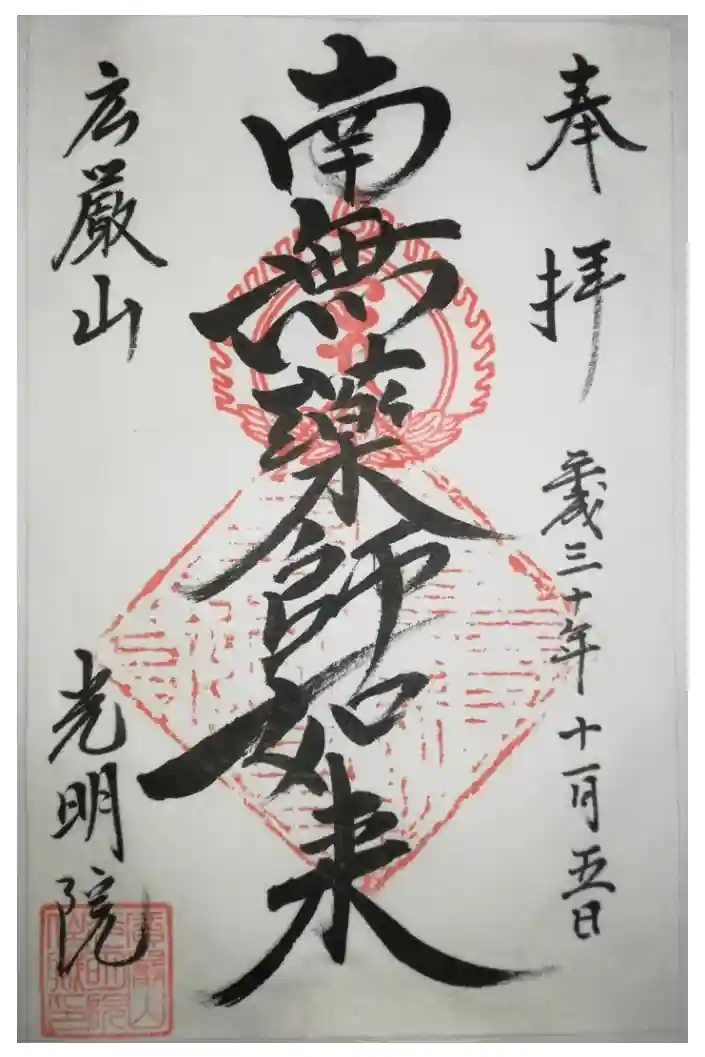 奉拝
平成三十年十一月五日
南無薬師如来
広厳山
光明院